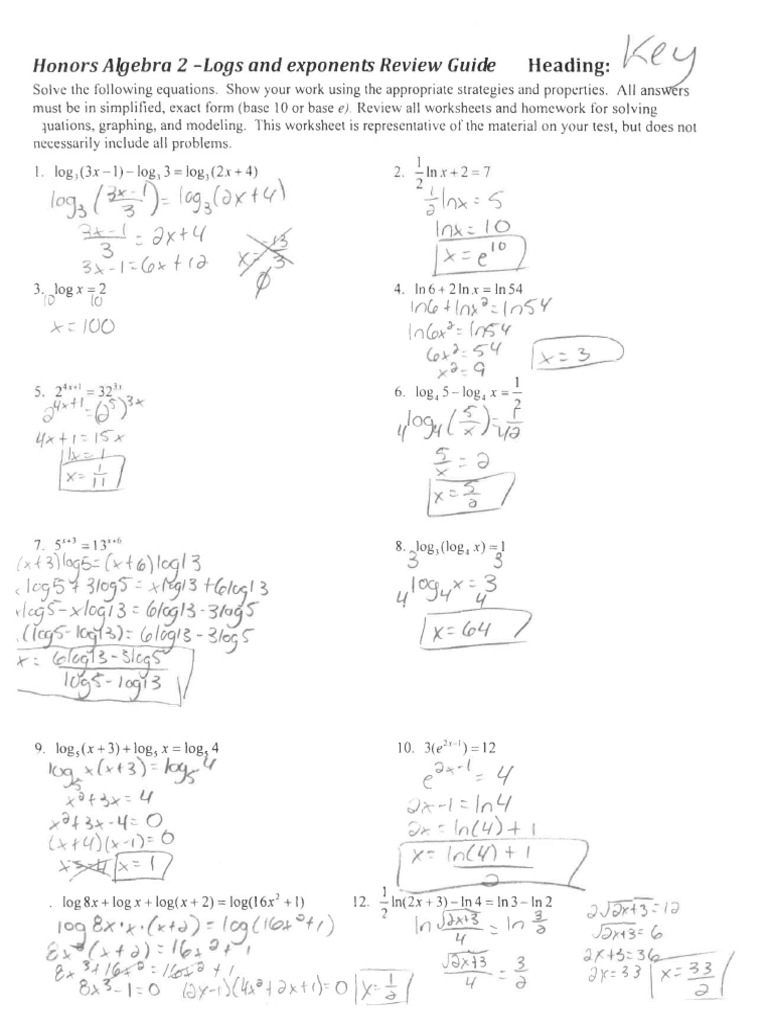 Honors Algebra 2 –Logs and exponents Review Guide Heading: Key
Solve the following equations. Show your work using the appropriate strategies and properties. All answers
must be in simplified, exact form (base 10 or base e). Review all worksheets and homework for solving
quations, graphing, and modeling. This worksheet is representative of the material on your test, but does not
necessarily include all problems.
1. log₃(3x – 1) – log₃ 3 = log₃(2x + 4)
log₃((3x-1)/3) = log₃(2x+4)
(3x-1)/3 = 2x+4
3x-1=6x+12
x=-13/3
∅
2. 1/2 ln x + 2 = 7
1/2 lnx = 5
lnx = 10
x = e¹⁰
3. log x = 2
10 10
x = 100
4. ln 6 + 2 ln x = ln 54
ln6 + lnx² = ln54
ln6x² = ln54
6x² = 54
x² = 9
x = 3
5. 2⁴ˣ⁺¹ = 32³ˣ
2⁴ˣ⁺¹ = (2⁵)³ˣ
4x+1 = 15x
11x = 1
x = 1/11
6. log₄ 5 – log₄ x = 1/2
4 log₄(5/x) = 4 1/2
5/x = 2
x = 5/2
7. 5ˣ⁺³ = 13ˣ⁺⁶
(x+3)log5 = (x+6)log13
log5 + 3log5 = xlog13 + 6log13
xlog5 - xlog13 = 6log13 - 3log5
(log5 - log13) = 6log13 - 3log5
x = (6log13 - 3log5)/(log5 - log13)
8. log₃(log₄ x) = 1
3 3
4 log₄x = 3 4
x = 64
9. log₅(x + 3) + log₅ x = log₅ 4
log₅ x(x+3) = log₅ 4
x² + 3x = 4
x² + 3x - 4 = 0
(x+4)(x-1) = 0
x=-4 x = 1
10. 3(e²ˣ⁻¹) = 12
e²ˣ⁻¹ = 4
2x-1 = ln4
2x = ln(4) + 1
x = (ln(4) + 1)/2
. log 8x + log x + log(x + 2) = log(16x² + 1)
log 8x·x·(x+2) = log(16x²+1)
8x²(x+2) = 16x² + 1
8x³ + 16x² = 16x² + 1
8x³ - 1 = 0 (2x-1)(4x²+2x+1) = 0 x = 1/2
12. 1/2 ln(2x + 3) – ln 4 = ln 3 – ln 2
ln √(2x+3)/4 = ln 3/2
√(2x+3)/4 = 3/2
2√(2x+3) = 12
√(2x+3) = 6
2x+3 = 36
2x = 33 x = 33/2